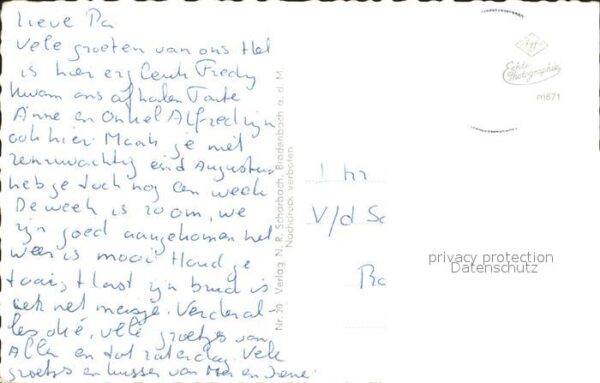 Lieve Pa
Vele groeten van ons Het
is hier erg leuk Fredy
kwam ons afhalen Tante
Anne en Onkel Alfred zijn
ook hier Maak je niet
zenuwachtig eind Augustus
heb je toch nog een week
De week is zo om, we
zijn goed aangekomen het
weer is mooi Houd je
taai, Horst zijn bruid is
een net meisje. Verder al-
les oké, vele groetjes van
Allen en tot zaterdag. Vele
groetjes en kussen van Ma en Irene
Nr. 20 Verlag N. R. Schorbach, Biedenbach a. d. M
Nachdruck verboten
Agfa
Echte
Photographie
m871
V/d Sc
privacy protection
Datenschutz